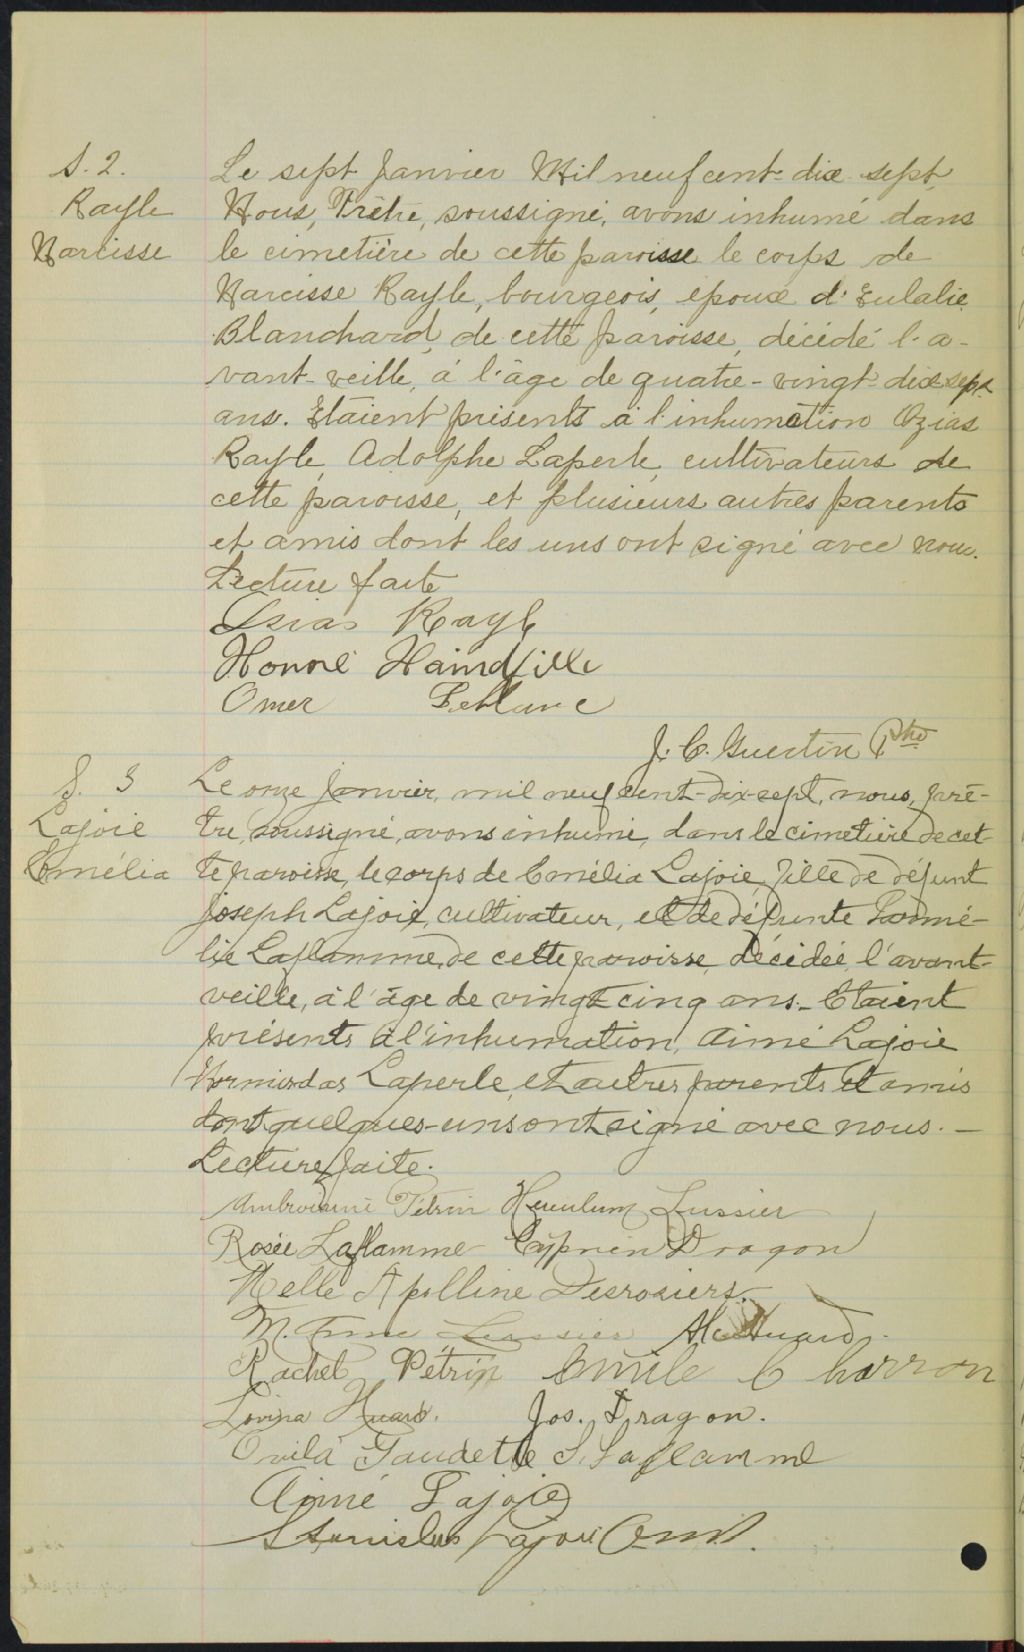 S. 2.
Rayle
Narcisse
Le sept Janvier Mil neuf cent-dix-sept,
Nous, Prêtre, soussigné, avons inhumé dans
le cimetière de cette paroisse le corps de
Narcisse Rayle, bourgeois, époux d'Eulalie
Blanchard, de cette paroisse, décédé l'a-
vant-veille, à l'âge de quatre-vingt-dix sept
ans. Etaient présents à l'inhumation Ozias
Rayle, Adolphe Laperle, cultivateurs de
cette paroisse, et plusieurs autres parents
et amis dont les uns ont signé avec nous.
Lecture faite
Osias Rayle
Honoré Haind ille
Omer Leblanc
J. C. Guertin Ptre
S. 3
Lajoie
Emélia
Le onze janvier, mil neuf cent-dix-sept, nous, prê-
tre, soussigné, avons inhumé, dans le cimetière de cet-
te paroisse, le corps de Emélia Lajoie, fille de défunt
Joseph Lajoie, cultivateur, et de défunte
Laflamme, de cette paroisse, décédée, l'avant-
veille, à l'âge de vingt cinq ans. Etaient
présents à l'inhumation, Aimé Lajoie
Hormisdas Laperle, et autres parents et amis
dont quelques-uns ont signé avec nous. —
Lecture faite.
Pétrin Lussier
Rosée Laflamme Cyprien Dragon
Melle Apolline Desrosiers.
M. Anne Lussier Huard.
Rachel Pétrin Emile Charron
Lovina Huard. Jos. Dragon.
Ovila Gaudette S. Laflamme
Aimé Lajoie
Stanislas Lajoie